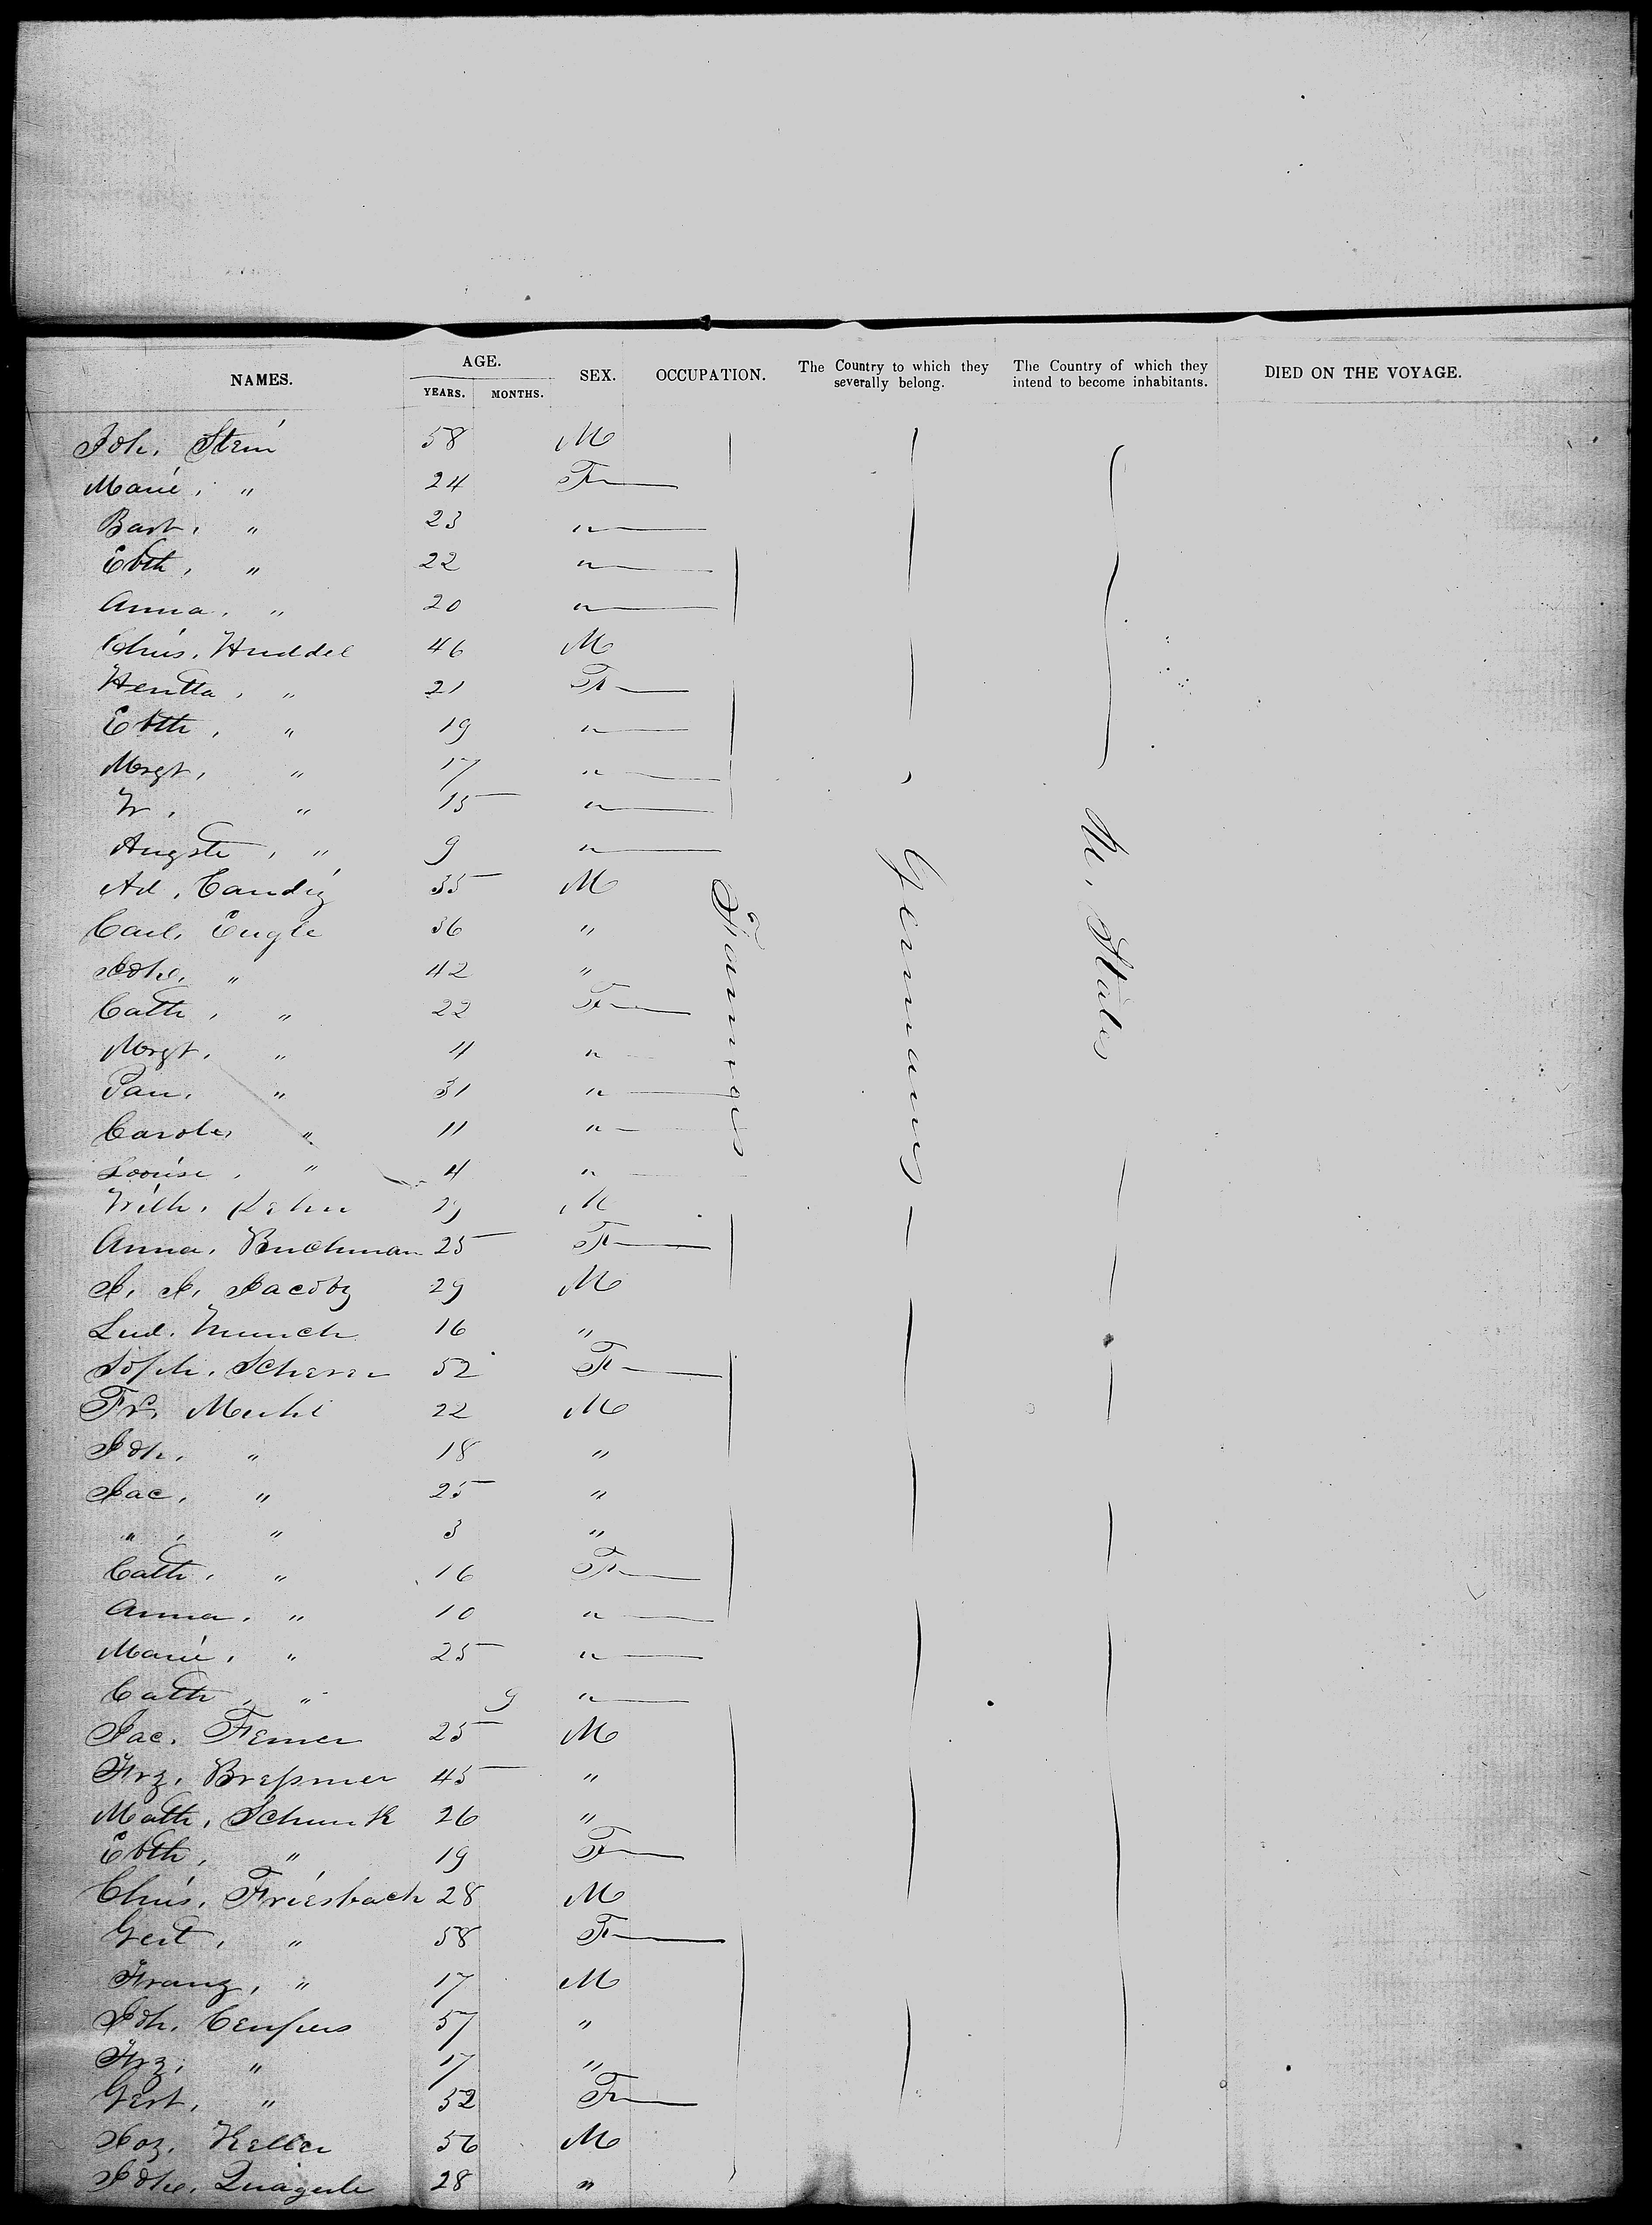 NAMES. AGE. SEX. OCCUPATION. The Country to which they severally belong. The Country of which they intend to become inhabitants. DIED ON THE VOYAGE.
YEARS. MONTHS.
Joh. Stein 58 M
Marie, " 24 F
Barb, " 23 "
Ebth, " 22 "
Anna, " 20 "
Chris. Huddel 46 M
Hentta, " 21 F
Ebth, " 19 "
Mrgt, " 17 "
W, " 15 "
Augste, " 9 "
Ad. Candig 35 M
Carl. Engle 36 "
Joh. " 42 "
Cath, " 22 F
Mrgt. " 4 "
Pau. " 31 "
Carole, " 11 "
Louise, " 4 "
Wilh. 29 M
Anna. Buchman 25 F
J. J. Jacoby 29 M
Lud. Munch 16 "
Soph. Scherer 52 F
Fr. Muhl 22 M
Joh. " 18 "
Jac, " 25 "
" , " 3 "
Cath, " 16 F
Anna, " 10 "
Marie, " 25 "
Cath, " 9 "
Jac. Femer 25 M
Frz. Breßmer 45 "
Math. Schunk 26 "
Ebth, " 19 F
Chris. Friesbach 28 M
Gert, " 58 F
Franz, " 17 M
Joh. 57 "
Frz, " 17 "
Gert, " 52 F
Joz. Keller 56 M
Joh. 28 "
Farmers
Germany
U. States